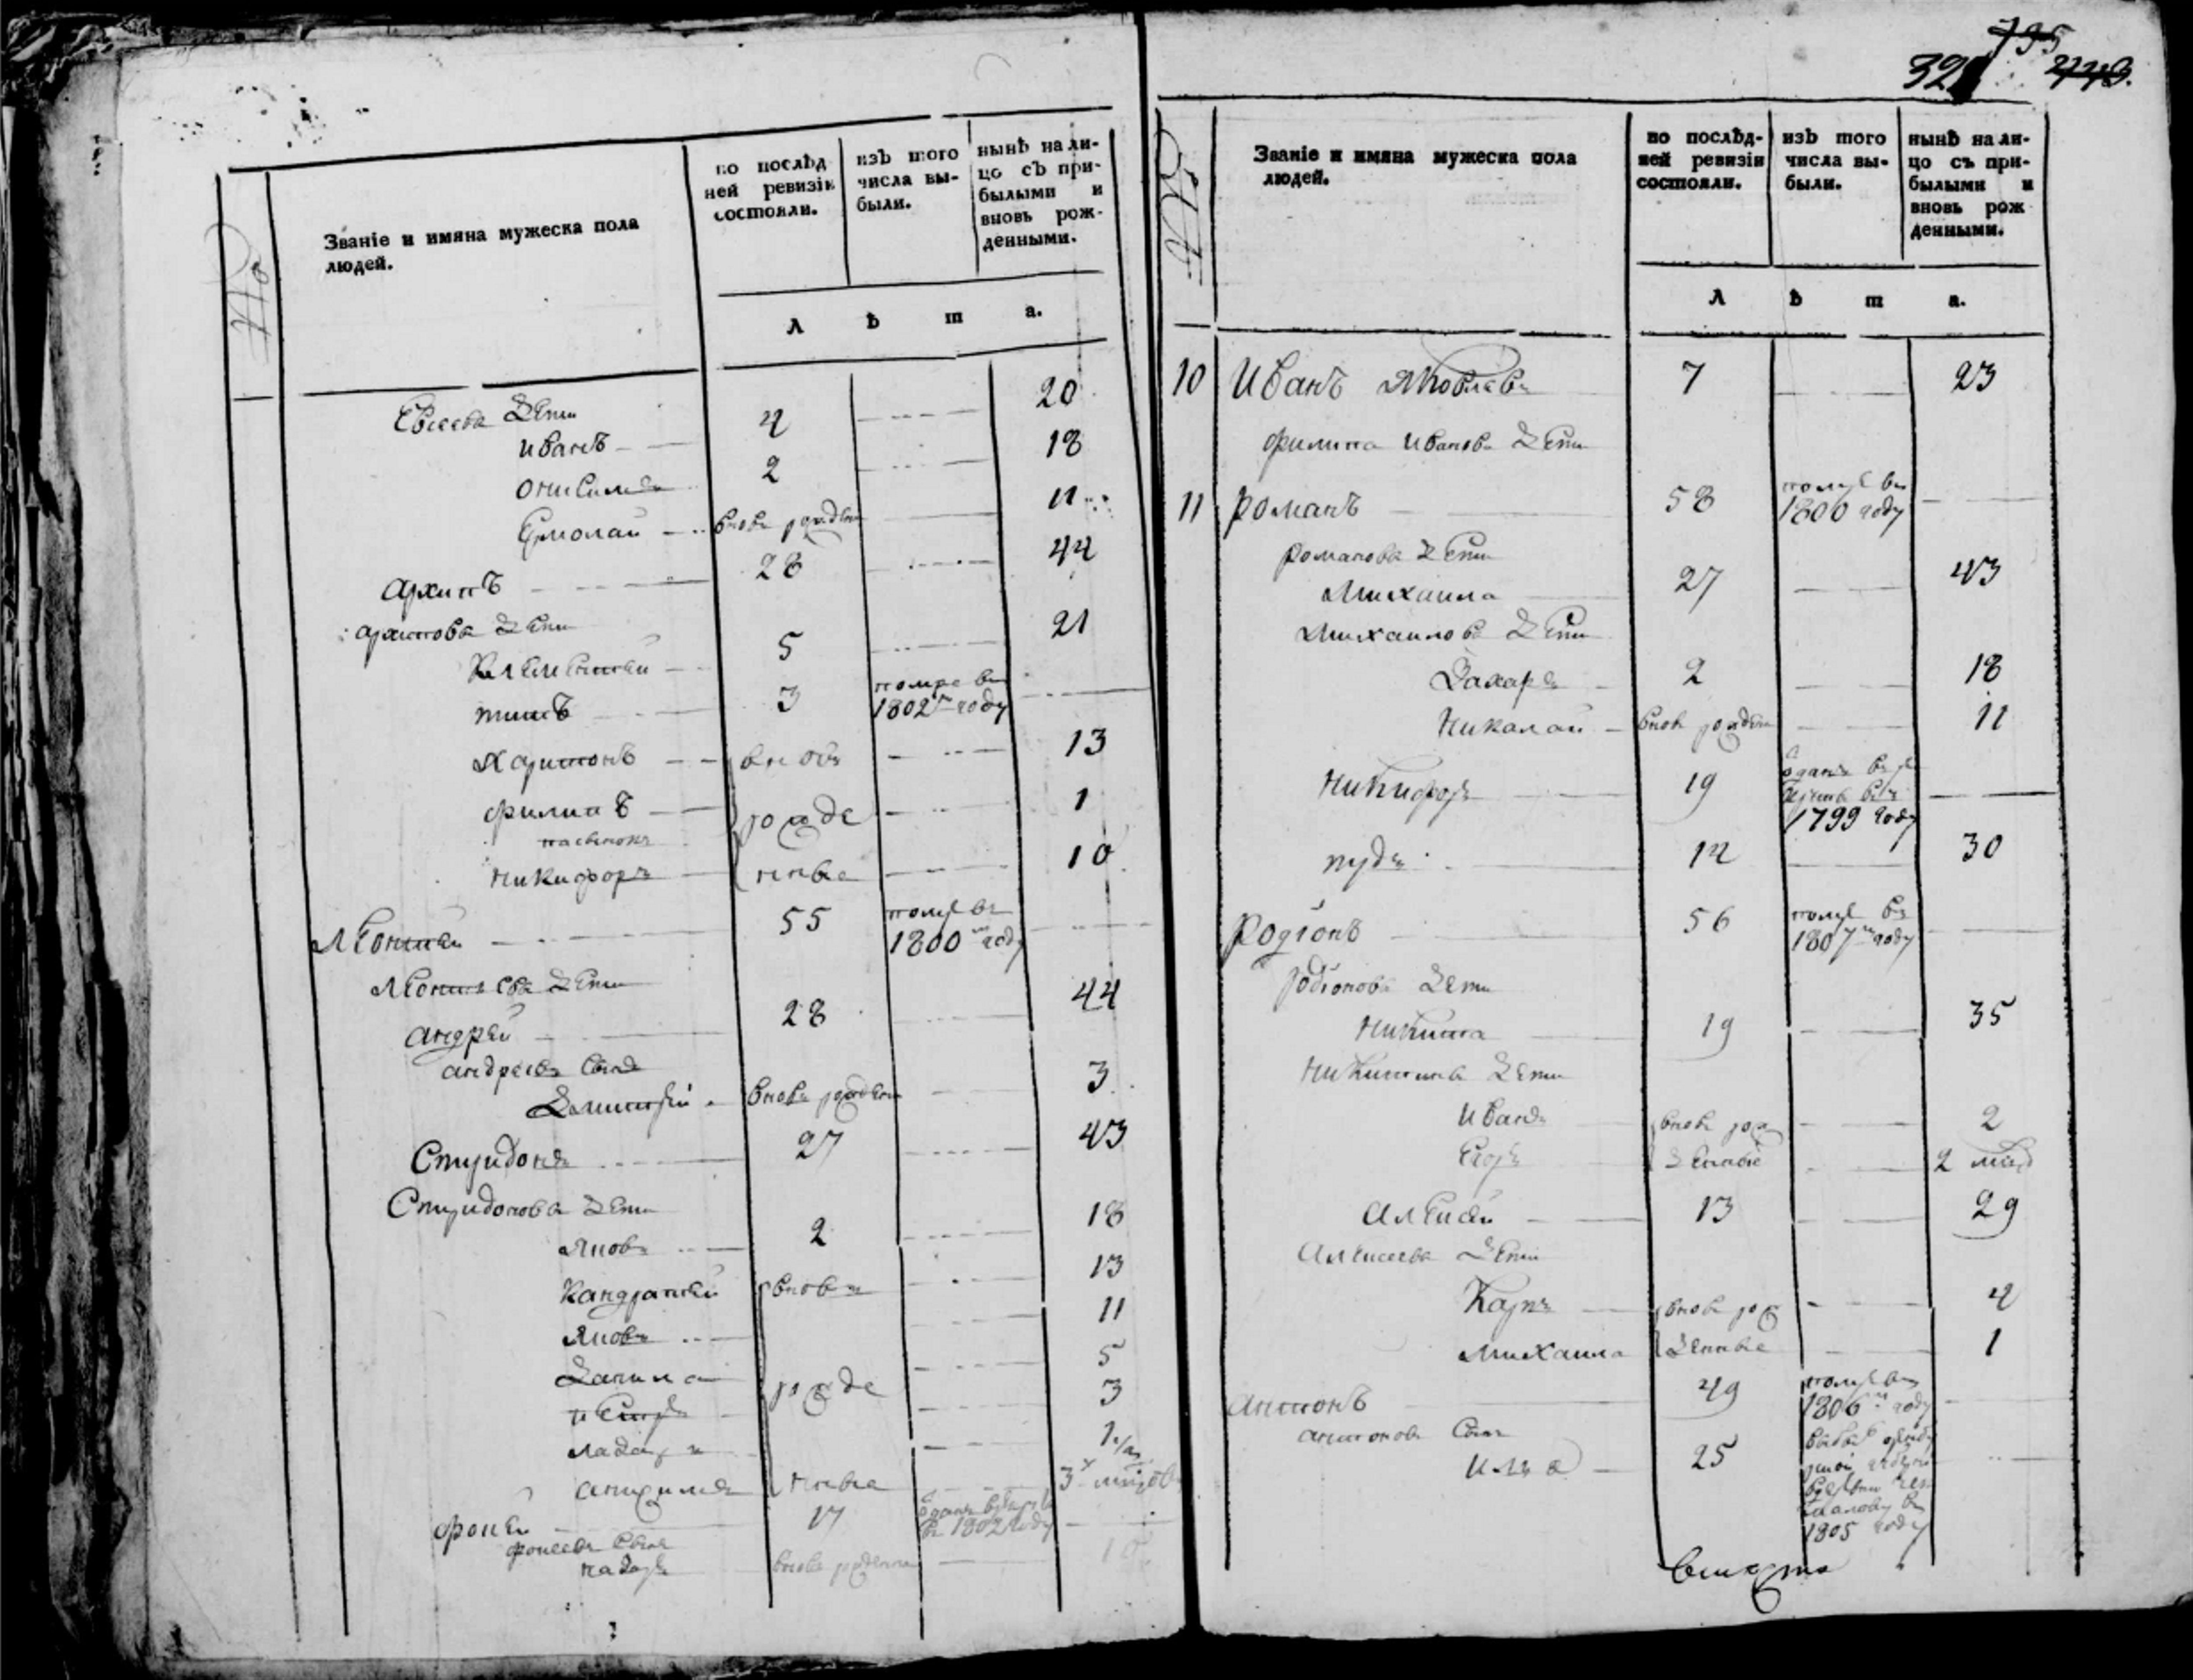 Званіе и имяна мужеска пола
людей.
по послѣд
ней ревизіи
состояли.
изъ того
числа вы-
были.
нынѣ на ли-
цо съ при-
былыми и
вновь рож-
денными.
Л ѣ т а.
Евсеева Дети
иванъ 4 20
онисимъ 2 18
Ермолаи вновь рожден 11
архипъ 28 44
архипова Дети
Клементеи 5 21
титъ 3 помре въ
1802м году
харитонъ вновь 13
филипъ рожде 1
пасынокъ
никифоръ нные 10
Леонтеи 55 помре въ
1800м году
Леонтьева Дети
андреи 28 44
андреевъ Сынъ
Дмитреи вновь рожден 3
Спиридонъ 27 43
Спиридонова Дети
Яковъ 2 18
Кандратеи вновь 13
Яковъ 11
Данила рожде 5
Петръ 3
анфимъ нные
фокеи 17
въ 1802 году
фокеевъ Сынъ
вновь рожден 10
735
743.
Званіе и имяна мужеска пола
людей.
по послѣд-
ней ревизіи
состояли.
изъ того
числа вы-
были.
нынѣ на ли-
цо съ при-
былыми и
вновь рож
денными.
Л ѣ т а.
10 Иванъ Яковлевъ 7 23
филипа Иванова Дети
11 романъ 58 помре въ
1800 году
романова Дети
Михаила 27 43
Михаилова Дети
Захаръ 2 18
Николаи вновь рожден 11
Никифоръ 19 отданъ въ ре
круты въ
1799 году
пудъ 14 30
Родіонъ 56 помре въ
1807м году
родіонова Дети
Никита 19 35
Никитина Дети
Иванъ вновь рож 2
Егоръ Денные 2 мец
Алексеи 13 29
Алексеева Дети
Карпъ вновь рож 4
Михаила Денные 1
Антонъ 49 помре въ
1806м году
антоновъ Сынъ
Илья 25
1805 году